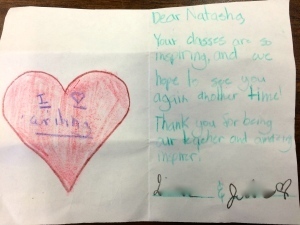 I ♥
writing
Dear Natasha,
Your classes are so
inspiring, and we
hope to see you
again another time!
Thank you for being
our together and
inspirer.
&